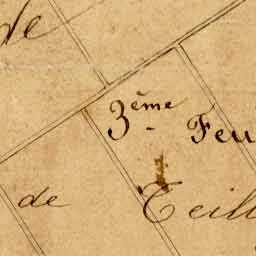 de
3ème Feu
de Teill